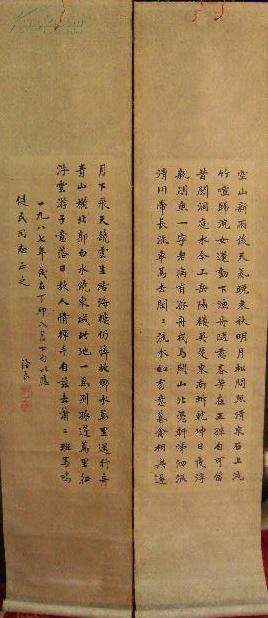 空山新雨後天氣晚來秋明月松間照清泉石上流
竹喧歸浣女蓮動下漁舟隨意春芳歇王孫自可留
昔聞洞庭水今上岳陽樓吳楚東南坼乾坤日夜浮
親朋無一字老病有孤舟戎馬關山北憑軒涕泗流
清川帶長流車馬去閑〻流水如有意暮禽相與還
月下飛天鏡雲生結海樓仍憐故鄉水萬里送行舟
青山橫北郭白水繞東城此地一為別孤蓬萬里征
浮雲游子意落日故人情揮手自茲去蕭〻班馬鳴
一九八七年歲在丁卯八月下旬以應
健民同志正之